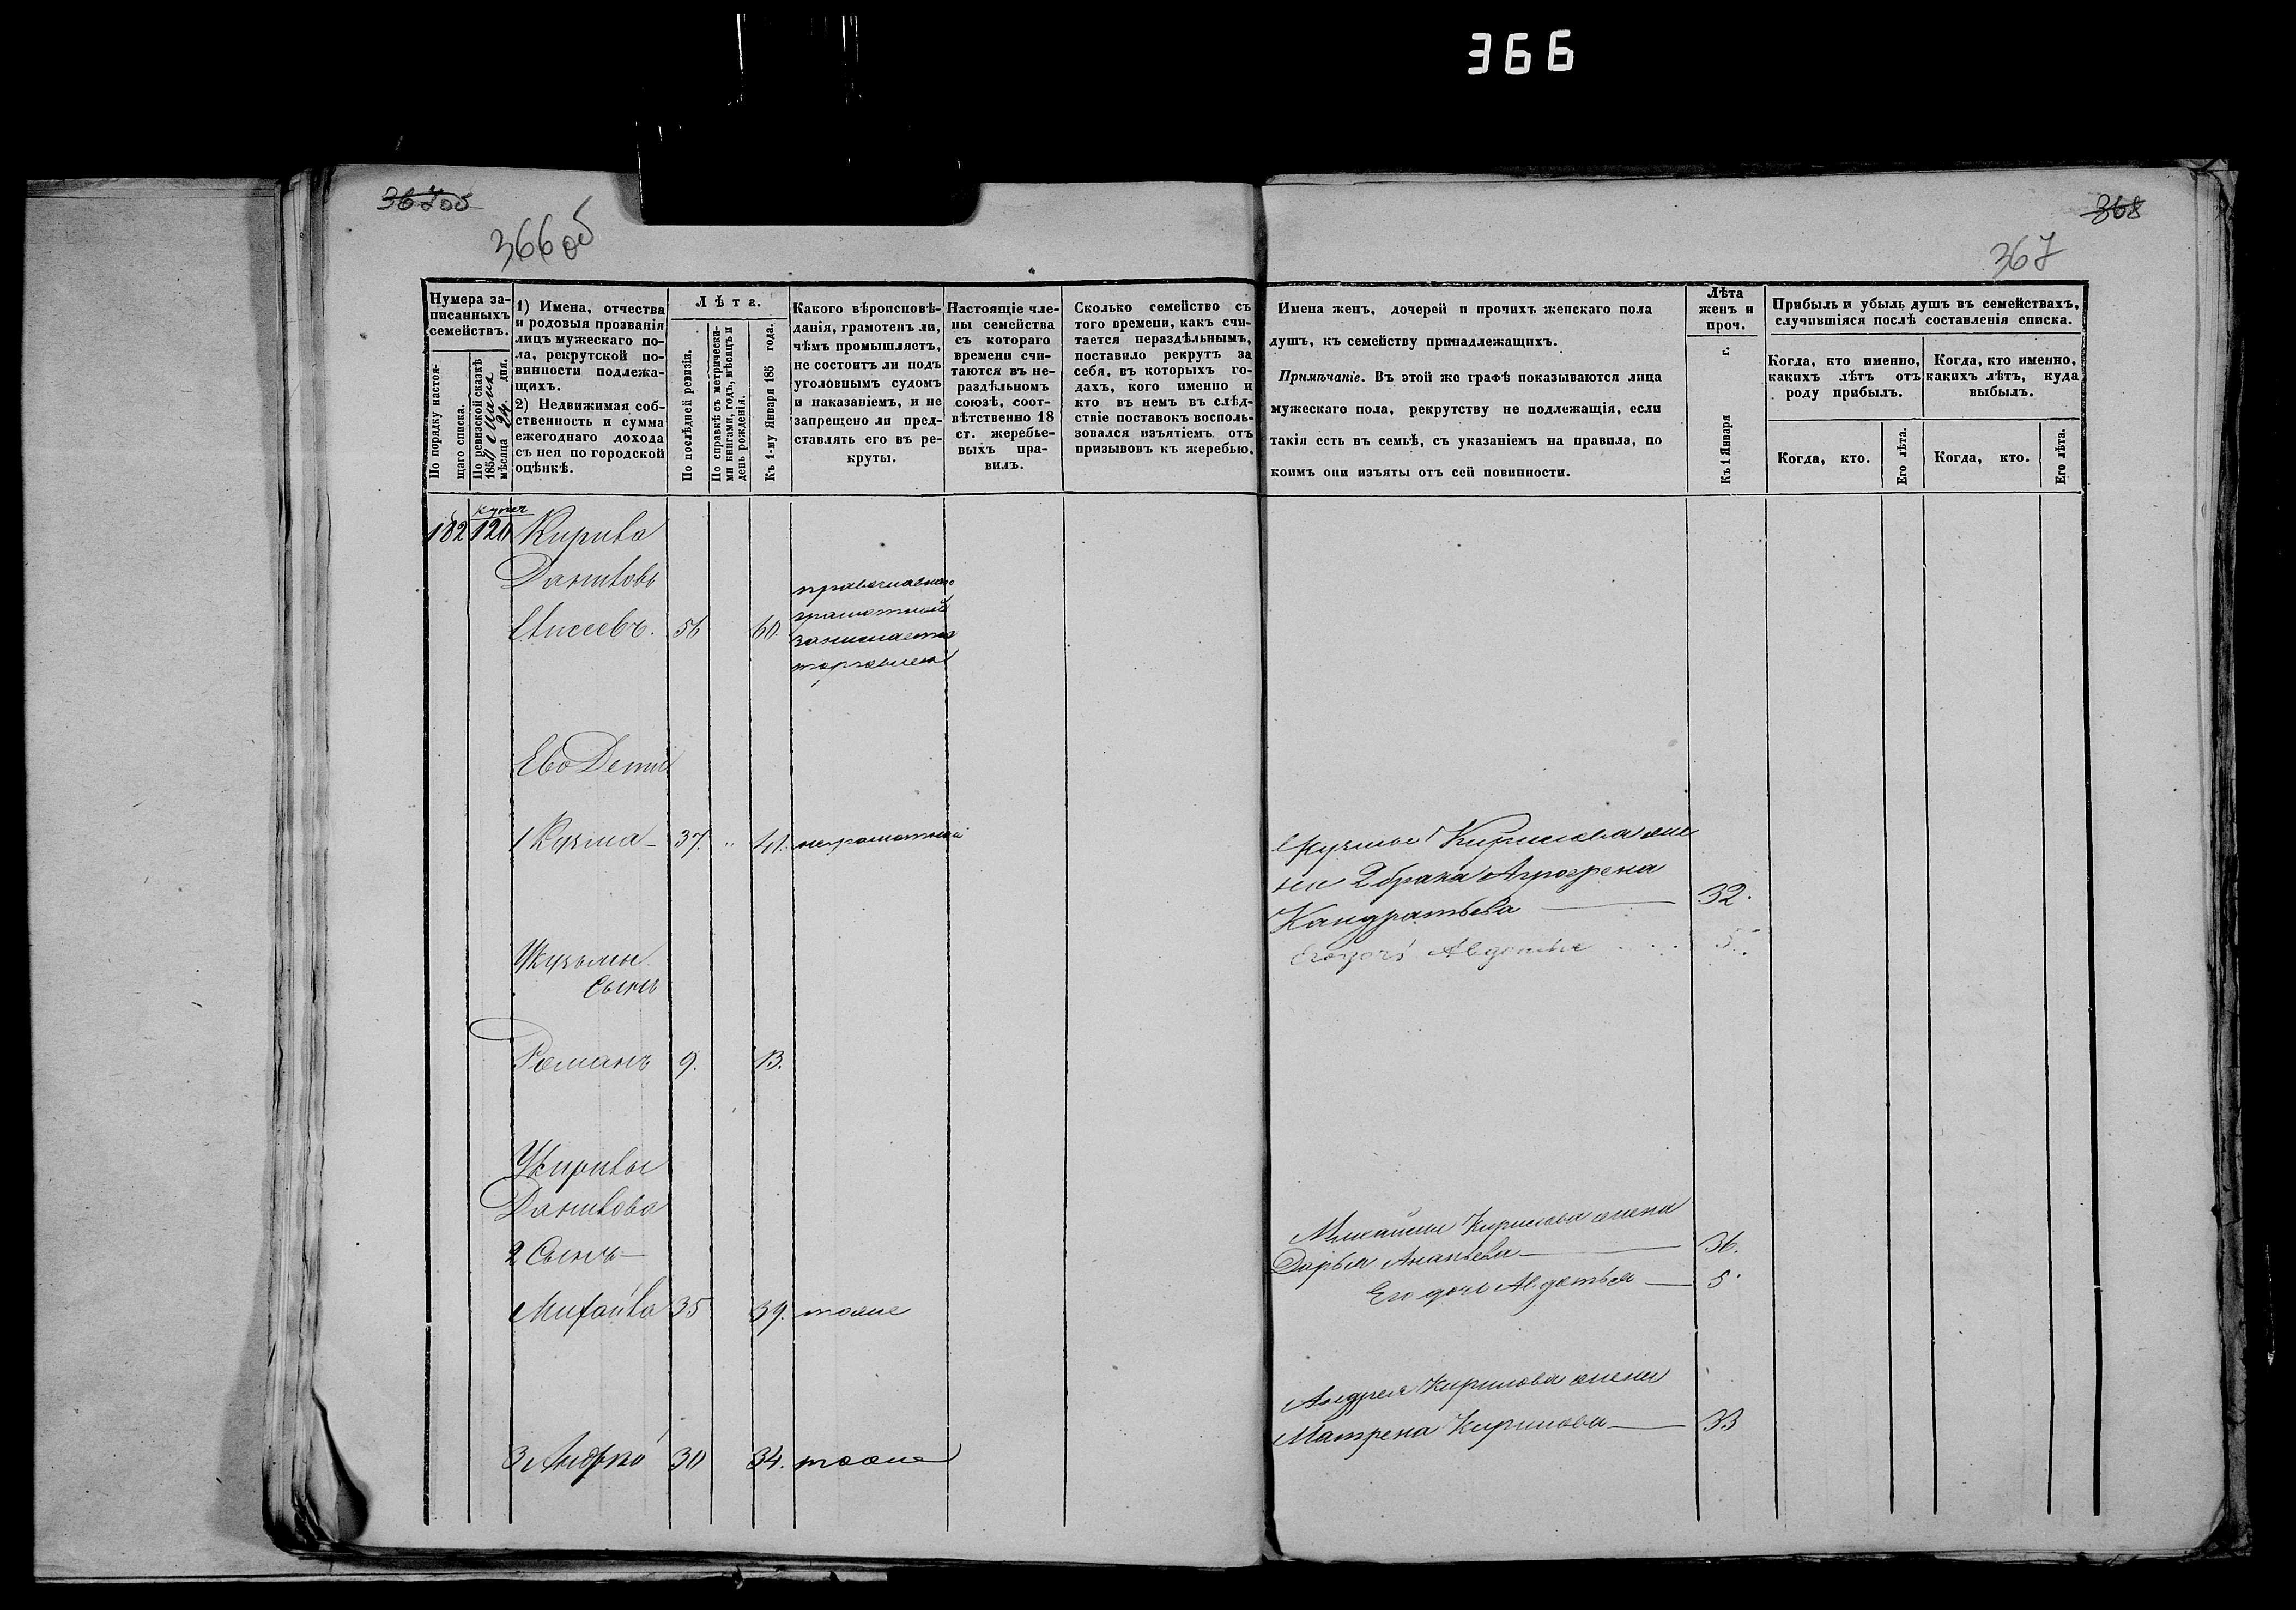 366
367об
366об
368
367
Нумера за-
писанныхъ
семействъ.
По порядку настоя-
щаго списка.
По ревизской сказкѣ
1857
мѣсяца 24 дня.
1) Имена, отчества
и родовыя прозванія
лицъ мужескаго по-
ла, рекрутской по-
винности подлежа-
щихъ.
2) Недвижимая соб-
ственность и сумма
ежегоднаго дохода
съ нея по городской
оцѣнкѣ.
Лѣта.
По послѣдней ревизіи.
По справкѣ съ метрически-
ми книгами, годъ, мѣсяцъ и
день рожденія.
Къ 1-му Января 185 года.
Какого вѣроисповѣ-
данія, грамотенъ ли,
чѣмъ промышляетъ,
не состоитъ ли подъ
уголовнымъ судомъ
и наказаніемъ, и не
запрещено ли пред-
ставлять его въ ре-
круты.
Настоящіе чле-
ны семейства
съ котораго
времени счи-
таются въ не-
раздѣльномъ
союзѣ, соот-
вѣтственно 18
ст. жеребье-
выхъ пра-
вилъ.
Сколько семейство съ
того времени, какъ счи-
тается нераздѣльнымъ,
поставило рекрутъ за
себя, въ которыхъ го-
дахъ, кого именно и
кто въ немъ въ слѣд-
ствіе поставокъ восполь-
зовался изъятіемъ отъ
призывовъ къ жеребью.
Имена женъ, дочерей и прочихъ женскаго пола
душъ, къ семейству принадлежащихъ.
Примѣчаніе. Въ этой же графѣ показываются лица
мужескаго пола, рекрутству не подлежащія, если
такія есть въ семьѣ, съ указаніемъ на правила, по
коимъ они изъяты отъ сей повинности.
Лѣта
женъ и
проч.
Къ 1 Января г.
Прибыль и убыль душъ въ семействахъ,
случившіяся послѣ составленія списка.
Когда, кто именно,
какихъ лѣтъ отъ
роду прибылъ.
Когда, кто именно,
какихъ лѣтъ, куда
выбылъ.
Когда, кто.
Его лѣта.
Когда, кто.
Его лѣта.
182 120 Кирила
Даниловъ
56 60
православнаго
грамотной
занимается
торговлею
Ево Дети
1 Кузма 37. " 41. неграмотной
Кузмы Кирилова же
на 2 брака Агрофена
Кандратьева 32.
Его дочь 5.
У кузьмы
Сынъ
Романъ 9. 13.
У кирилы
Данилова
2 Сынъ
Михайла 35 39. тоже
Михайлы Кирилова жена
Дарья Ананьева 36.
Его дочь Авдотья 5.
3 Андрей 30 34. тоже
Андрея Кирилова жена
Матрена Кирилова 33